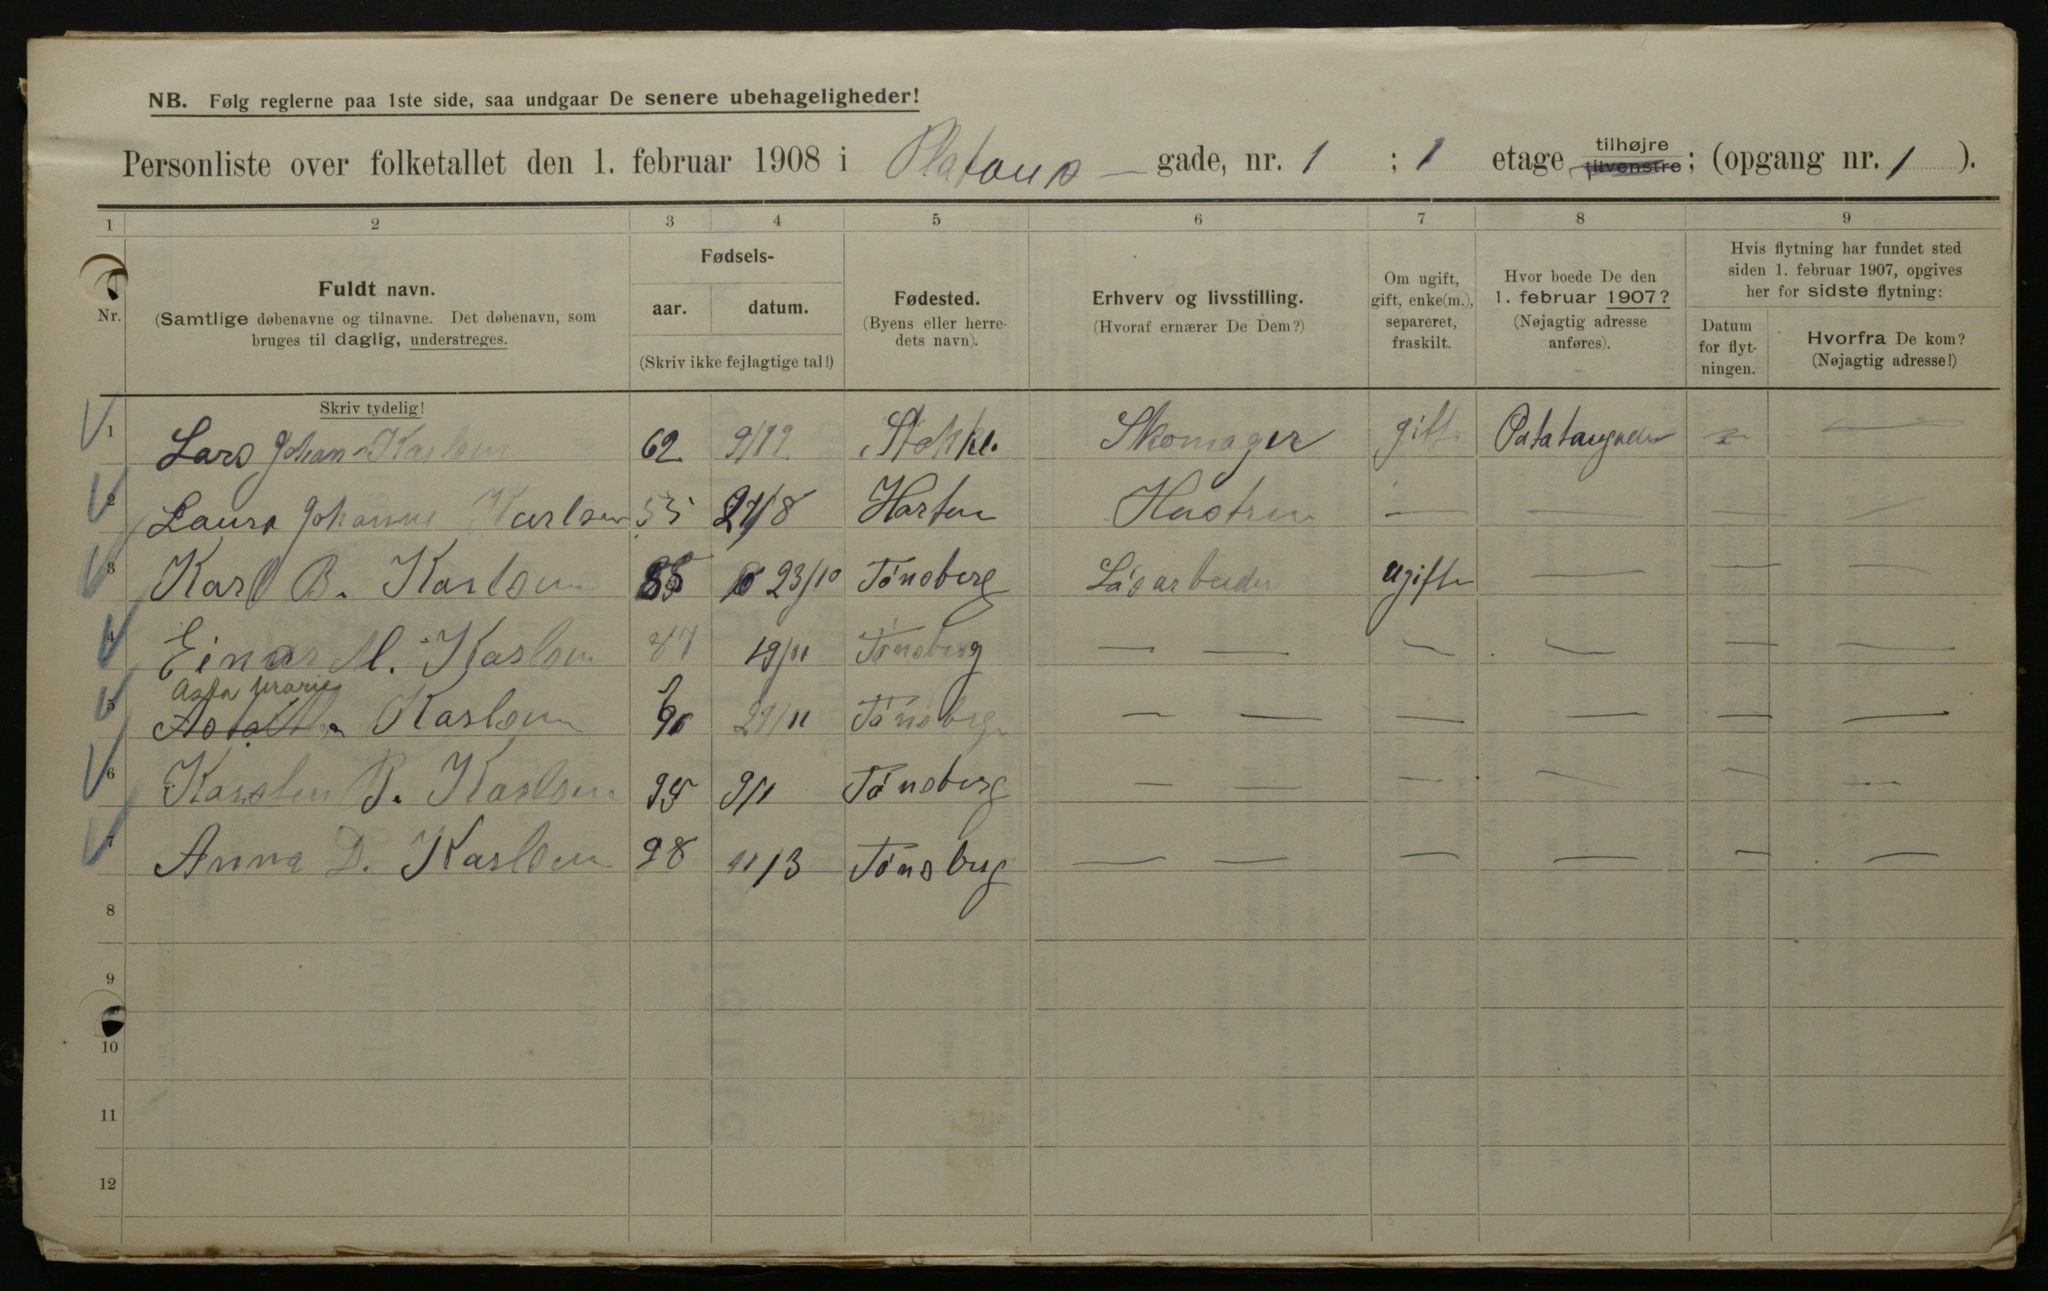 NB. Følg reglerne paa 1ste side, saa undgaar De senere ubehageligheder!
Personliste over folketallet den 1. februar 1908 i Platous — gade, nr. 1 ; 1 etage tilhøjre tilvenstre; (opgang nr. 1 ).
1 2 3 4 5 6 7 8 9
Nr.
Fuldt navn.
(Samtlige døbenavne og tilnavne. Det døbenavn, som
bruges til daglig, understreges.
Skriv tydelig!
Fødsels-
aar. datum.
(Skriv ikke fejlagtige tal!)
Fødested.
(Byens eller herre-
dets navn).
Erhverv og livsstilling.
(Hvoraf ernærer De Dem?)
Om ugift,
gift, enke(m.),
separeret,
fraskilt.
Hvor boede De den
1. februar 1907?
(Nøjagtig adresse
anføres).
Hvis flytning har fundet sted
siden 1. februar 1907, opgives
her for sidste flytning:
Datum
for flyt-
ningen.
Hvorfra De kom?
(Nøjagtig adresse!)
1 Lars Johan Karlsen 62 9/12 Stokke. Skomager gift — —
2 Laura Johanne Karlsen 55 27/8 Horten Hustru — — — —
3 Karl B. Karlsen 85 23/10 Tønsberg Løsarbeider ugift — — —
4 Einar M. Karlsen 87 19/11 Tønsberg — — — — — —
Asta Marie
5 Karlsen 90 29/11 Tønsberg — — — — — —
6 Karsten P. Karlsen 95 9/1 Tønsberg — — — — — —
7 Anna D. Karlsen 98 11/3 Tønsberg — — — — — —
8
9
10
11
12